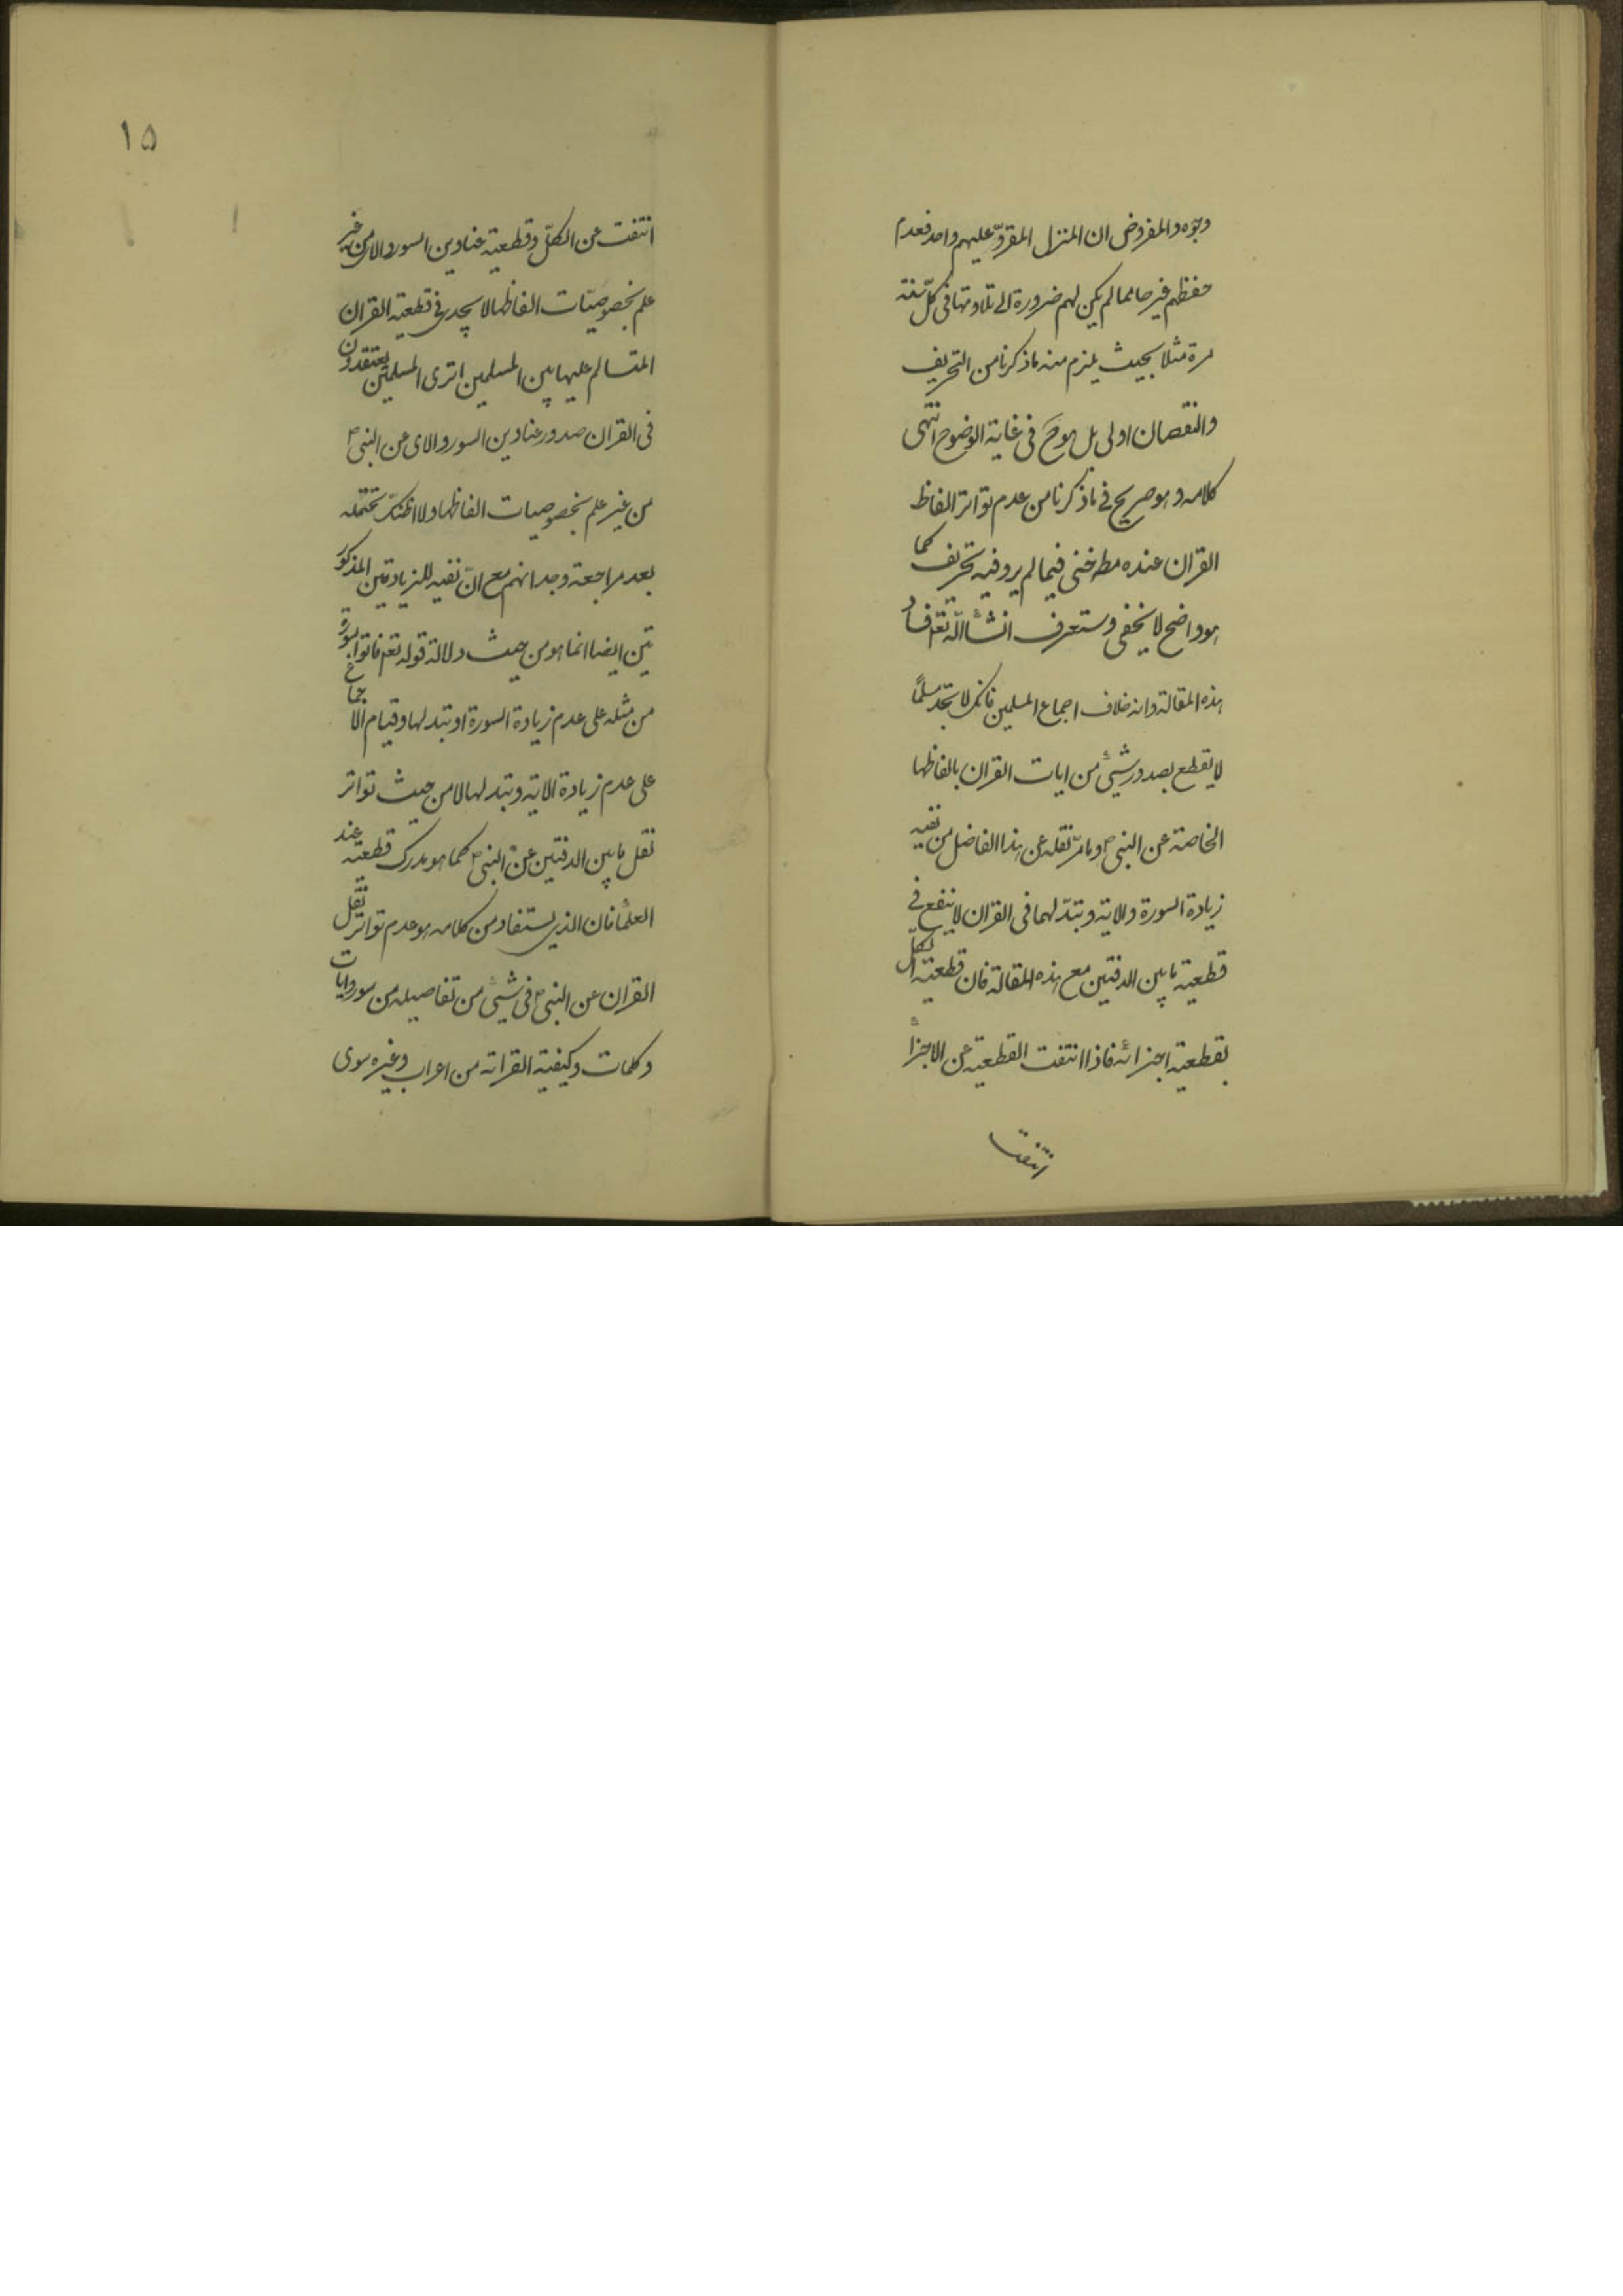 وجوه والمفروض ان المنزل المقروّ عليهم واحد فعدم
حفظهم غيرها مما لم يكن لهم ضرورة الى تلاوتها فى كلّ سنة
مرة مثلا بحيث يلزم منه ماذكرنا من التحريف
والنقصان اولى بل هو ح فى غاية الوضوح انتهى
كلامه وهو صريح فى ماذكرنا من عدم تواتر الفاظ
القران عنده مط حتى فيما لم يرو فيه تحريف كما
هو واضح لا يخفى وستعرف انشاء اللّه تعم فساد
هذه المقالة وانه خلاف اجماع المسلمين فانك لا تجد مسلمًا
لا يقطع بصدور شيئ من ايات القران بالفاظها
الخاصة عن النبى ص ومامرّ نقله عن هذا الفاضل من نفيه
زيادة السورة والاية وتبدّلهما فى القران لا ينفع فى
قطعية مابين الدفتين مع هذه المقالة فان قطعية الكلّ
بقطعية اجزائه فاذا انتفت القطعية عن الاجزاء
انتفت
١٥
انتفت عن الكلّ وقطعية عناوين السور والاى من غير
علم بخصوصيّات الفاظها لا يجدى فى قطعية القران
المتسالم عليها بين المسلمين اترى المسلمين يعتقدون
فى القران صدور عناوين السور والاى عن النبى ص
من غير علم بخصوصيات الفاظها ولا اظنك تحتمله
بعد مراجعة وجدانهم مع انّ نفيه للزيادتين المذكور
تين ايضا انما هو من حيث دلالة قوله تعم فاتوا بسورة
من مثله على عدم زيادة السورة او تبدلها وقيام الاجماع
على عدم زيادة الاية وتبدلها لا من حيث تواتر
نقل مابين الدفتين عن النبى ص كما هو مدرك قطعيته عند
العلماء فان الذى يستفاد من كلامه هو عدم تواتر نقل
القران عن النبى ص فى شيئ من تفاصيله من سور وايات
وكلمات وكيفية القراته من اعراب وغيره سوى